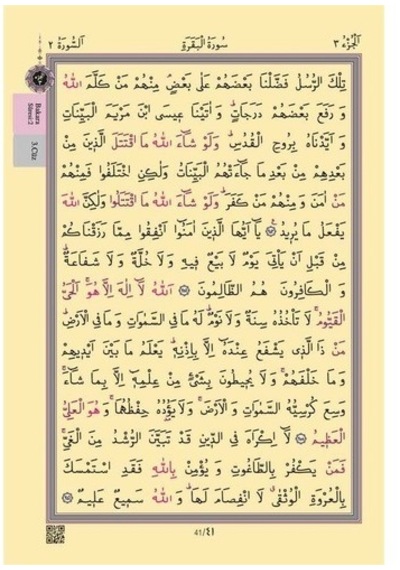 اَلْجُزْءُ ٣ سُورَةُ الْبَقَرَةِ اَلسُّورَةُ ٢
تِلْكَ الرُّسُلُ فَضَّلْنَا بَعْضَهُمْ عَلٰى بَعْضٍ مِنْهُمْ مَنْ كَلَّمَ اللّٰهُ
وَ رَفَعَ بَعْضَهُمْ دَرَجَاتٍ وَ اٰتَيْنَا عِيسَى ابْنَ مَرْيَمَ الْبَيِّنَاتِ
وَ اَيَّدْنَاهُ بِرُوحِ الْقُدُسِ وَلَوْ شَٓاءَ اللّٰهُ مَا اقْتَتَلَ الَّذِينَ مِنْ
بَعْدِهِمْ مِنْ بَعْدِ مَا جَٓاءَتْهُمُ الْبَيِّنَاتُ وَلٰكِنِ اخْتَلَفُوا فَمِنْهُمْ
مَنْ اٰمَنَ وَ مِنْهُمْ مَنْ كَفَرَ وَلَوْ شَٓاءَ اللّٰهُ مَا اقْتَتَلُوا وَلٰكِنَّ اللّٰهَ
يَفْعَلُ مَا يُرِيدُ ﴿٢٥٣﴾ يَٓا اَيُّهَا الَّذِينَ اٰمَنُٓوا اَنْفِقُوا مِمَّا رَزَقْنَاكُمْ
مِنْ قَبْلِ اَنْ يَاْتِيَ يَوْمٌ لَا بَيْعٌ فِيهِ وَ لَا خُلَّةٌ وَ لَا شَفَاعَةٌ
وَ الْكَافِرُونَ هُمُ الظَّالِمُونَ ﴿٢٥٤﴾ اَللّٰهُ لَٓا اِلٰهَ اِلَّا هُوَ اَلْحَيُّ
الْقَيُّومُ لَا تَاْخُذُهُ سِنَةٌ وَ لَا نَوْمٌ لَهُ مَا فِي السَّمٰوَاتِ وَ مَا فِي الْاَرْضِ
مَنْ ذَا الَّذِي يَشْفَعُ عِنْدَهُٓ اِلَّا بِاِذْنِهِ يَعْلَمُ مَا بَيْنَ اَيْدِيهِمْ
وَ مَا خَلْفَهُمْ وَ لَا يُحِيطُونَ بِشَيْءٍ مِنْ عِلْمِهِٓ اِلَّا بِمَا شَٓاءَ
وَسِعَ كُرْسِيُّهُ السَّمٰوَاتِ وَ الْاَرْضَ وَ لَا يَؤُدُهُ حِفْظُهُمَا وَ هُوَ الْعَلِيُّ
الْعَظِيمُ ﴿٢٥٥﴾ لَٓا اِكْرَاهَ فِي الدِّينِ قَدْ تَبَيَّنَ الرُّشْدُ مِنَ الْغَيِّ
فَمَنْ يَكْفُرْ بِالطَّاغُوتِ وَ يُؤْمِنْ بِاللّٰهِ فَقَدِ اسْتَمْسَكَ
بِالْعُرْوَةِ الْوُثْقٰى لَا انْفِصَامَ لَهَا وَ اللّٰهُ سَمِيعٌ عَلِيمٌ ﴿٢٥٦﴾
Bakara
Sûresi:2
3.Cüz
41/٤١